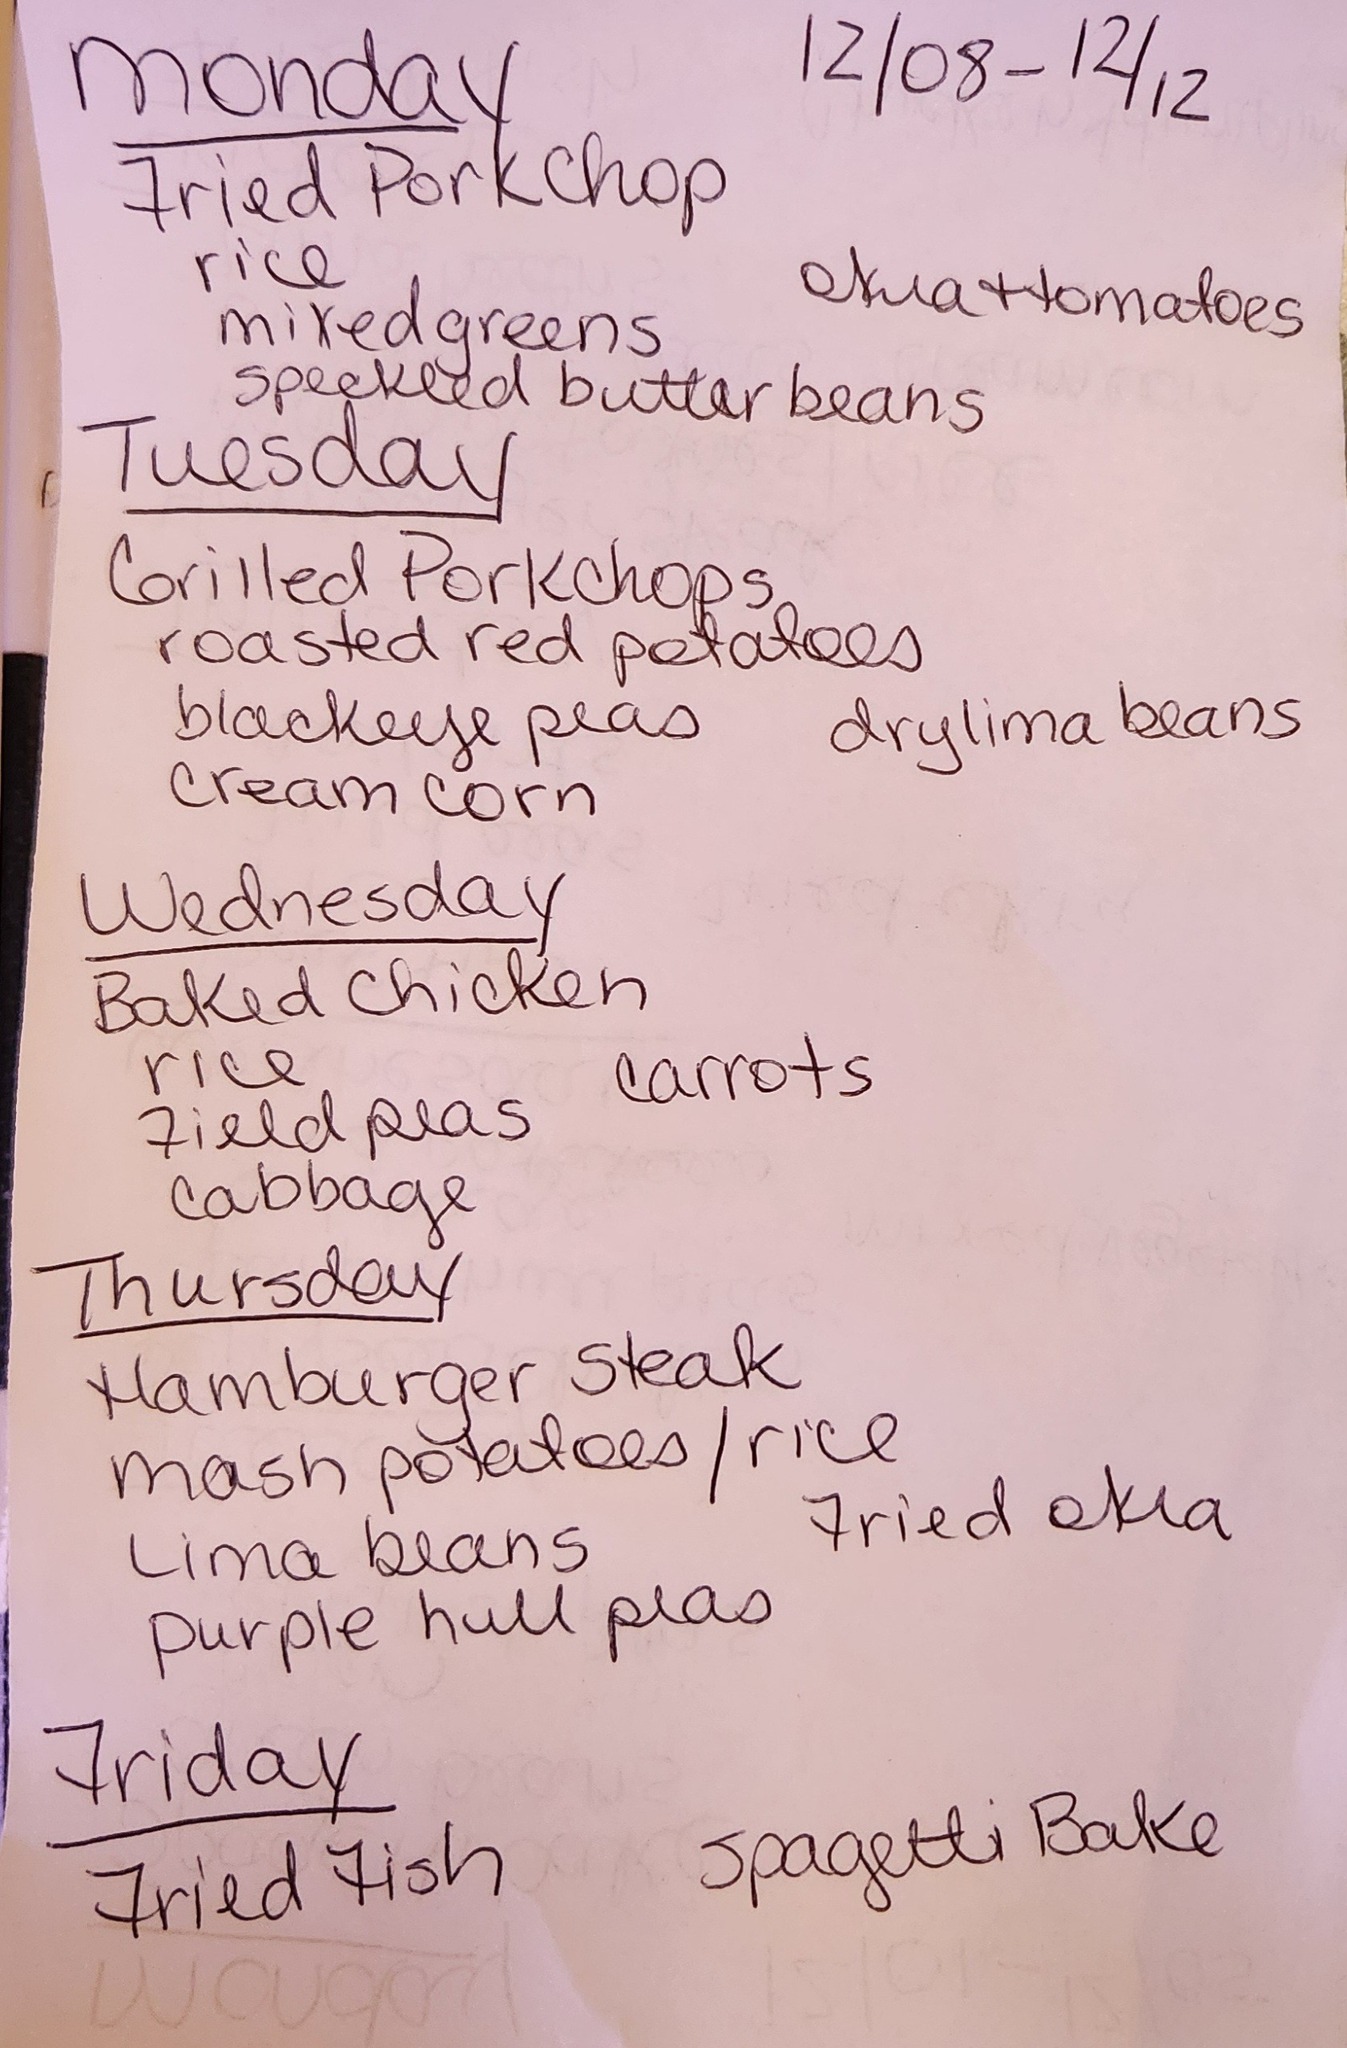 Monday 12/08 - 12/12
Fried Porkchop
rice
okra + tomatoes
mixed greens
speckled butter beans
Tuesday
Grilled Porkchops
roasted red potatoes
blackeye peas dry lima beans
cream corn
Wednesday
Baked Chicken
rice carrots
Field peas
cabbage
Thursday
Hamburger Steak
mash potatoes / rice
Fried okra
Lima beans
purple hull peas
Friday
Fried Fish Spagetti Bake